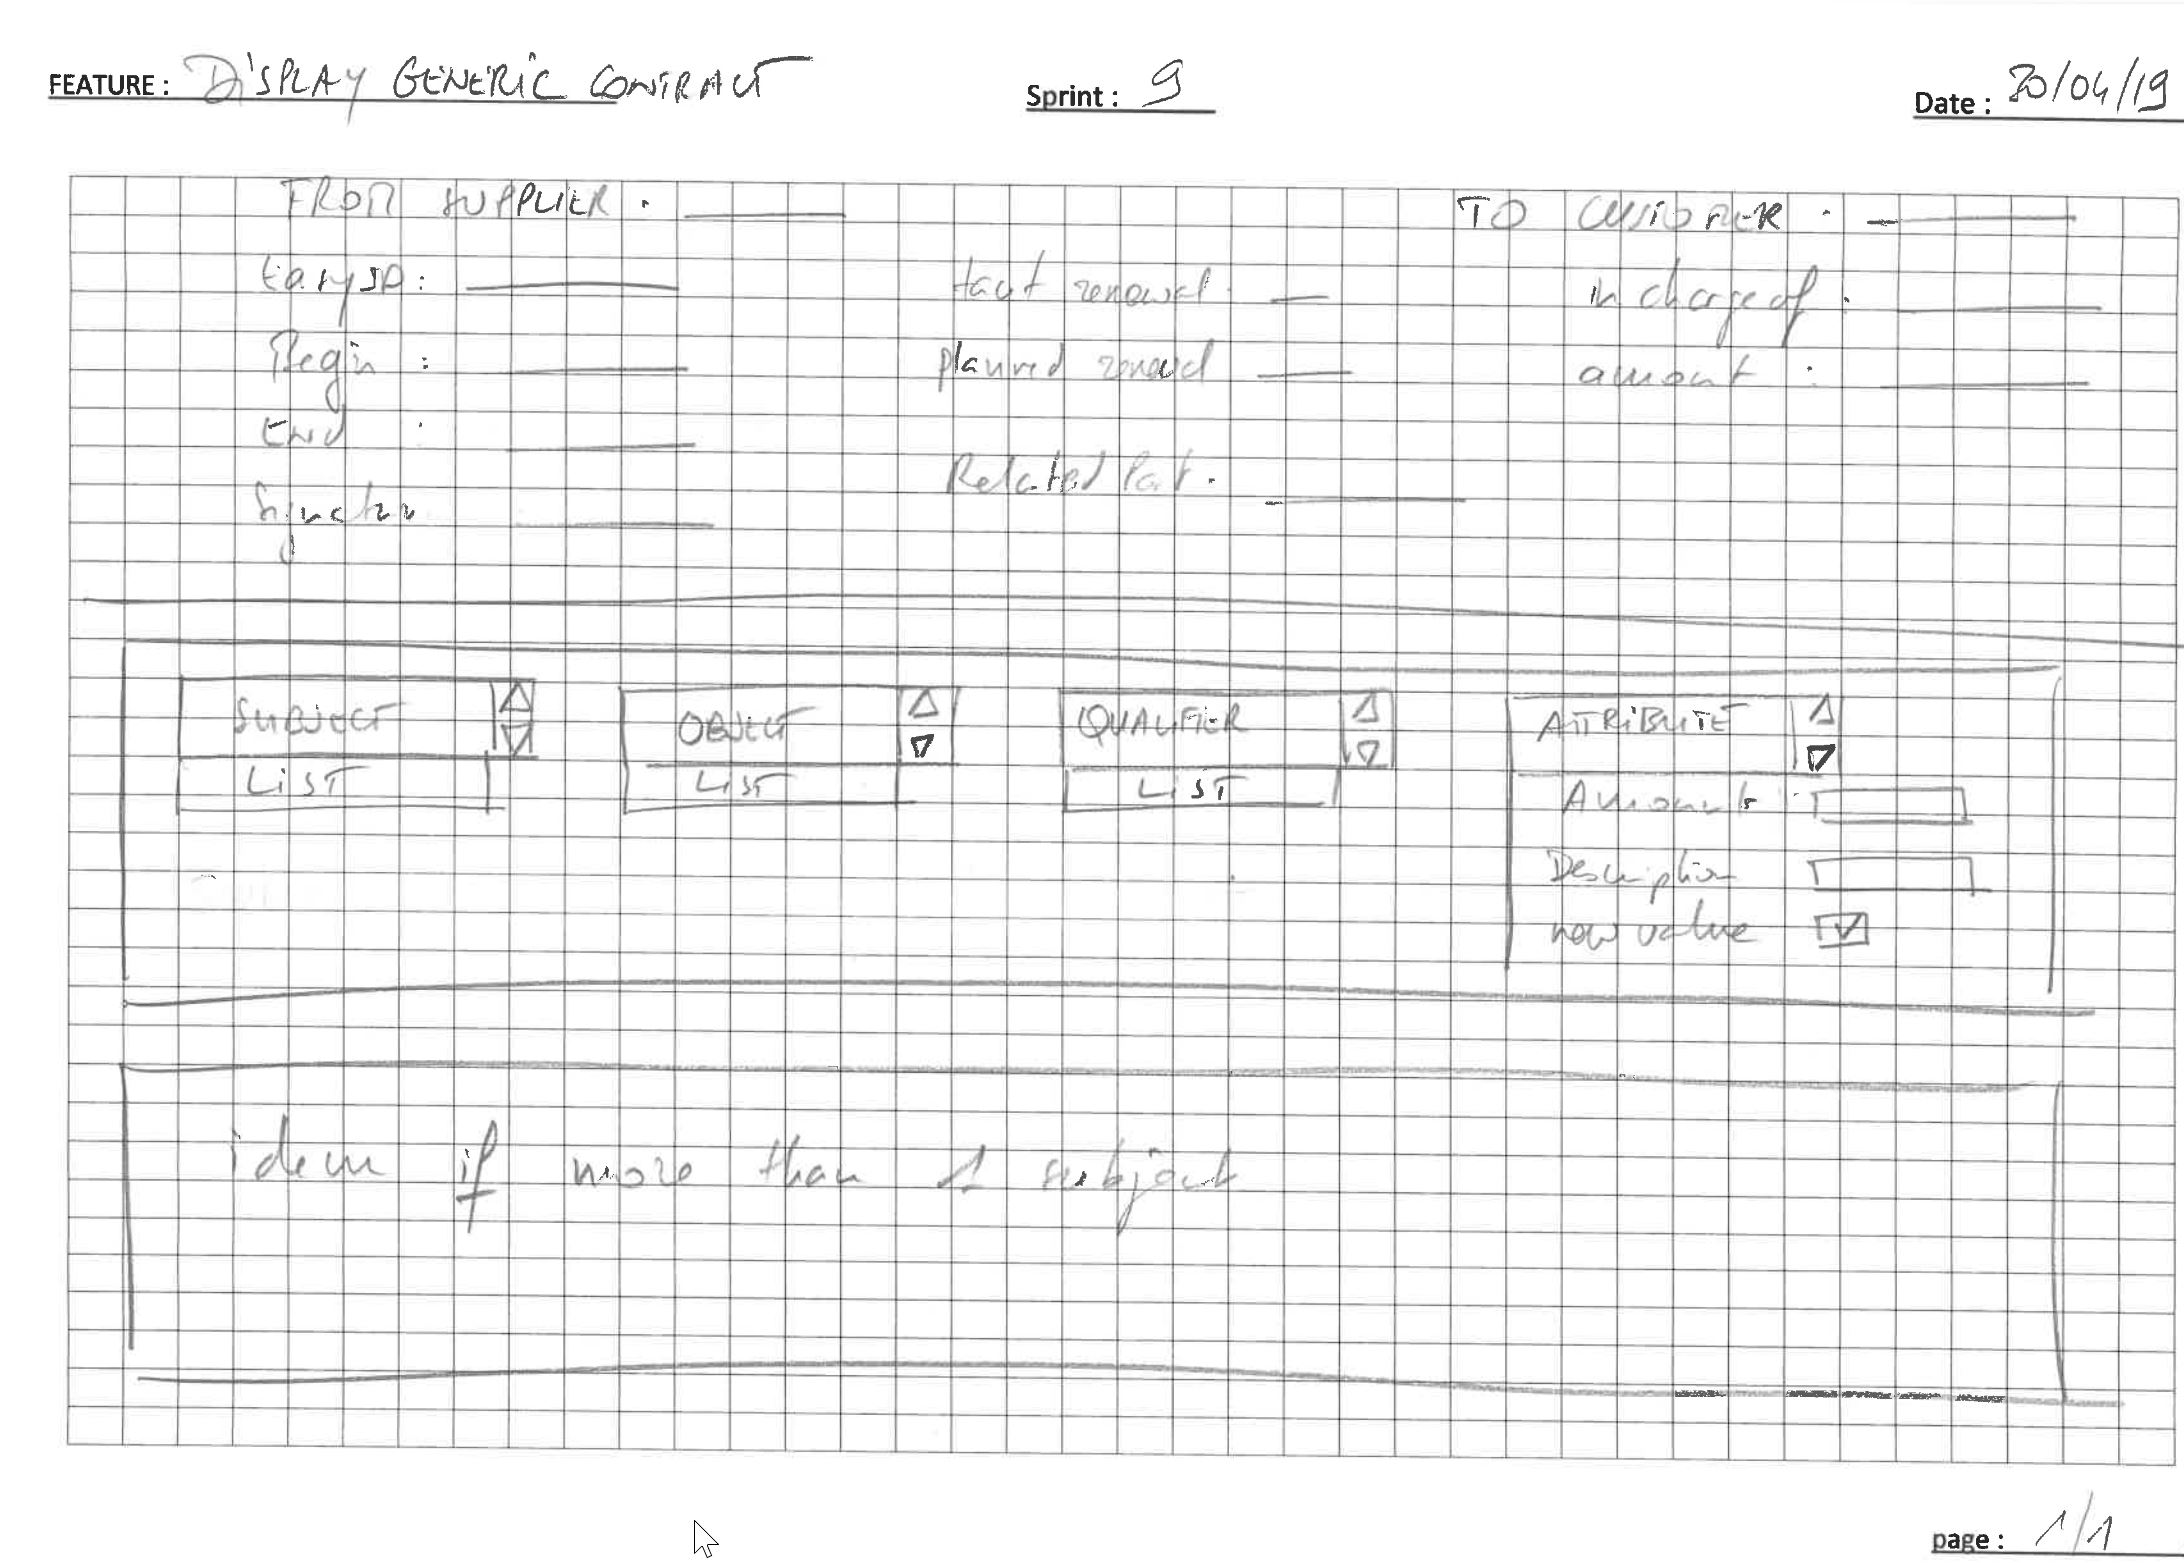 FEATURE : DISPLAY GENERIC CONTRACT Sprint : 9 Date : 30/04/19
FROM SUPPLIER : TO CUSTOMER :
tacit renewal : in charge of :
Begin : planned renewal amount :
End :
Related Part :
SUBJECT OBJECT QUALIFIER ATTRIBUTE
LIST LIST LIST Amount :
Description
new value
idem if more than 1 subject
page : 1/1